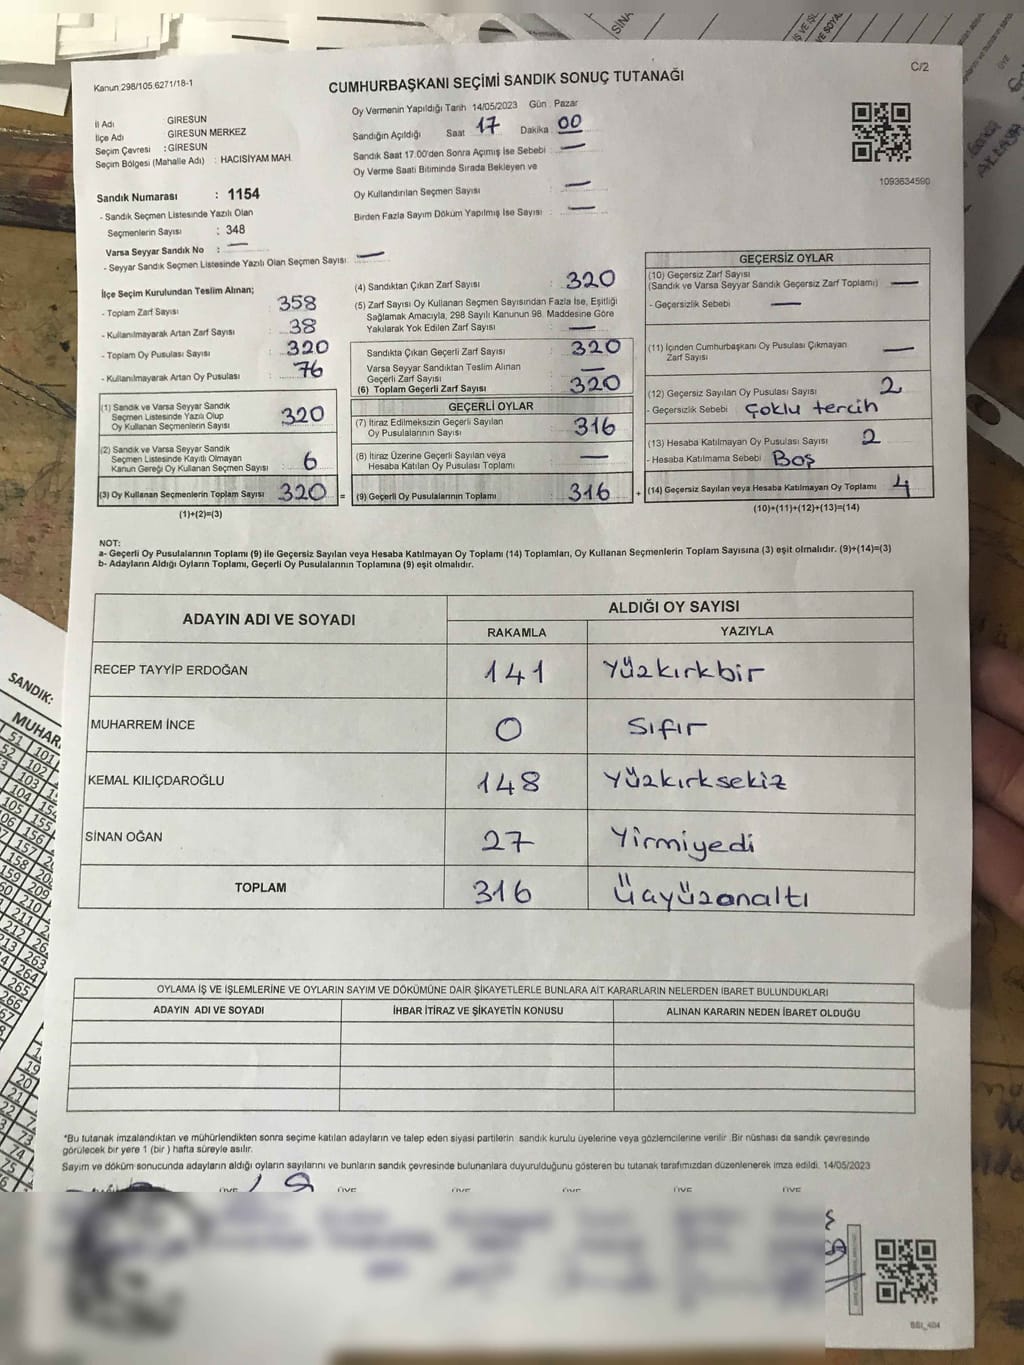 C/2
Kanun 298/105,6271/18-1
CUMHURBAŞKANI SEÇİMİ SANDIK SONUÇ TUTANAĞI
İl Adı GİRESUN
İlçe Adı : GİRESUN MERKEZ
Seçim Çevresi : GİRESUN
Seçim Bölgesi (Mahalle Adı) : HACISİYAM MAH.
Oy Vermenin Yapıldığı Tarih 14/05/2023 Gün : Pazar
Sandığın Açıldığı Saat 17 Dakika 00
Sandık Saat 17:00'den Sonra Açımış İse Sebebi : —
Oy Verme Saati Bitiminde Sırada Bekleyen ve
Oy Kullandırılan Seçmen Sayısı : —
Birden Fazla Sayım Döküm Yapılmış İse Sayısı : —
1093634590
Sandık Numarası : 1154
- Sandık Seçmen Listesinde Yazılı Olan
Seçmenlerin Sayısı : 348
Varsa Seyyar Sandık No : —
- Seyyar Sandık Seçmen Listesinde Yazılı Olan Seçmen Sayısı: —
İlçe Seçim Kurulundan Teslim Alınan;
- Toplam Zarf Sayısı : 358
- Kullanılmayarak Artan Zarf Sayısı : 38
- Toplam Oy Pusulası Sayısı : 320
- Kullanılmayarak Artan Oy Pusulası : 76
(1) Sandık ve Varsa Seyyar Sandık
Seçmen Listesinde Yazılı Olup
Oy Kullanan Seçmenlerin Sayısı : 320
(2) Sandık ve Varsa Seyyar Sandık
Seçmen Listesinde Kayıtlı Olmayan
Kanun Gereği Oy Kullanan Seçmen Sayısı : 6
(3) Oy Kullanan Seçmenlerin Toplam Sayısı 320 =
(1)+(2)=(3)
(4) Sandıktan Çıkan Zarf Sayısı : 320
(5) Zarf Sayısı Oy Kullanan Seçmen Sayısından Fazla İse, Eşitliği
Sağlamak Amacıyla, 298 Sayılı Kanunun 98. Maddesine Göre
Yakılarak Yok Edilen Zarf Sayısı : —
Sandıkta Çıkan Geçerli Zarf Sayısı : 320
Varsa Seyyar Sandıktan Teslim Alınan
Geçerli Zarf Sayısı : —
(6) Toplam Geçerli Zarf Sayısı : 320
GEÇERLİ OYLAR
(7) İtiraz Edilmeksizin Geçerli Sayılan
Oy Pusulalarının Sayısı : 316
(8) İtiraz Üzerine Geçerli Sayılan veya
Hesaba Katılan Oy Pusulası Toplamı : —
(9) Geçerli Oy Pusulalarının Toplamı : 316 +
GEÇERSİZ OYLAR
(10) Geçersiz Zarf Sayısı
(Sandık ve Varsa Seyyar Sandık Geçersiz Zarf Toplamı) : —
- Geçersizlik Sebebi : —
(11) İçinden Cumhurbaşkanı Oy Pusulası Çıkmayan
Zarf Sayısı : —
(12) Geçersiz Sayılan Oy Pusulası Sayısı : 2
- Geçersizlik Sebebi : Çoklu tercih
(13) Hesaba Katılmayan Oy Pusulası Sayısı : 2
- Hesaba Katılmama Sebebi : Boş
(14) Geçersiz Sayılan veya Hesaba Katılmayan Oy Toplamı : 4
(10)+(11)+(12)+(13)=(14)
NOT:
a- Geçerli Oy Pusulalarının Toplamı (9) ile Geçersiz Sayılan veya Hesaba Katılmayan Oy Toplamı (14) Toplamları, Oy Kullanan Seçmenlerin Toplam Sayısına (3) eşit olmalıdır. (9)+(14)=(3)
b- Adayların Aldığı Oyların Toplamı, Geçerli Oy Pusulalarının Toplamına (9) eşit olmalıdır.
ADAYIN ADI VE SOYADI ALDIĞI OY SAYISI
RAKAMLA YAZIYLA
RECEP TAYYİP ERDOĞAN 141 Yüzkırkbir
MUHARREM İNCE 0 Sıfır
KEMAL KILIÇDAROĞLU 148 Yüzkırksekiz
SİNAN OĞAN 27 Yirmiyedi
TOPLAM 316 Üçyüzonaltı
OYLAMA İŞ VE İŞLEMLERİNE VE OYLARIN SAYIM VE DÖKÜMÜNE DAİR ŞİKAYETLERLE BUNLARA AİT KARARLARIN NELERDEN İBARET BULUNDUKLARI
ADAYIN ADI VE SOYADI İHBAR İTİRAZ VE ŞİKAYETİN KONUSU ALINAN KARARIN NEDEN İBARET OLDUĞU
*Bu tutanak imzalandıktan ve mühürlendikten sonra seçime katılan adayların ve talep eden siyasi partilerin sandık kurulu üyelerine veya gözlemcilerine verilir. Bir nüshası da sandık çevresinde
görülecek bir yere 1 (bir ) hafta süreyle asılır.
Sayım ve döküm sonucunda adayların aldığı oyların sayılarını ve bunların sandık çevresinde bulunanlara duyurulduğunu gösteren bu tutanak tarafımızdan düzenlenerek imza edildi. 14/05/2023
ÜYE ÜYE ÜYE ÜYE ÜYE ÜYE
SANDIK:
MUHAR